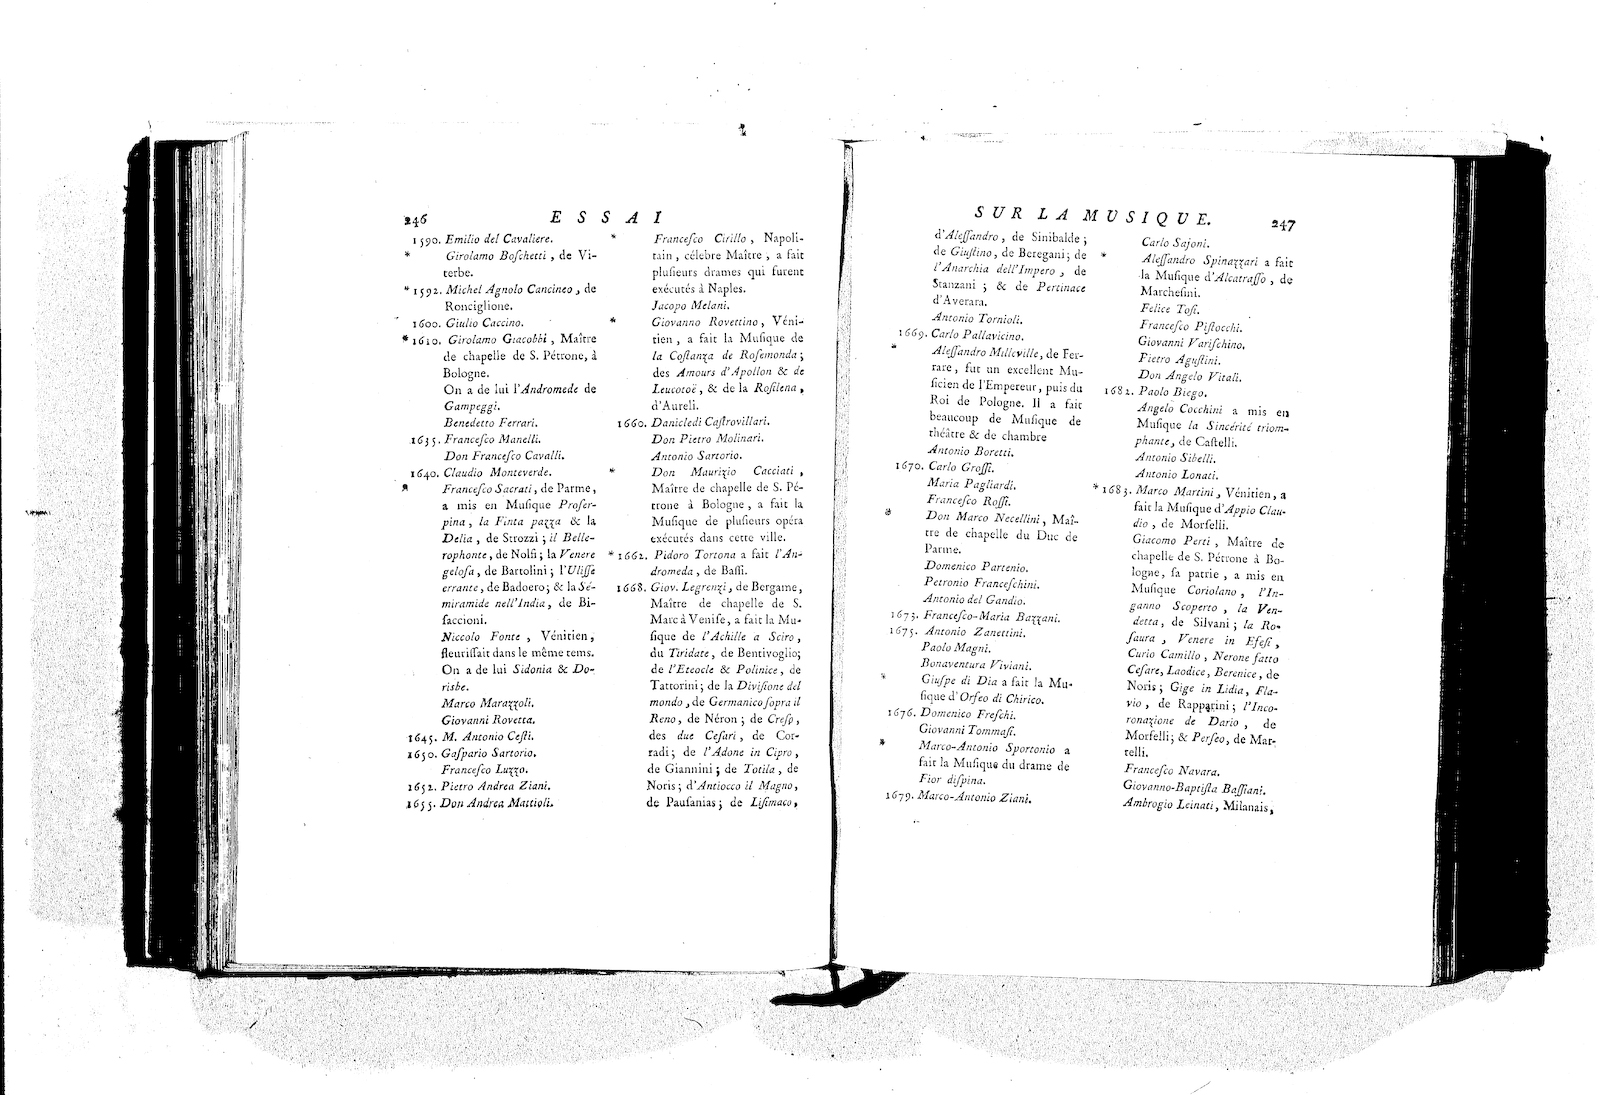 246
ESSAI
1590. Emilio del Cavaliere.
* Girolamo Boſchetti, de Vi-
terbe.
* 1592. Michel Agnolo Cancineo, de
Ronciglione.
1600. Giulio Caccino.
* 1610. Girolamo Giacobbi, Maître
de chapelle de S. Pétrone, à
Bologne.
On a de lui l'Andromede de
Gampeggi.
Benedetto Ferrari.
1635. Franceſco Manelli.
Don Franceſco Cavalli.
1640. Claudio Monteverde.
* Franceſco Sacrati, de Parme,
a mis en Muſique Proſer-
pina, la Finta pazza & la
Delia, de Strozzi; il Belle-
rophonte, de Nolfi; la Venere
geloſa, de Bartolini; l'Uliſſe
errante, de Badoero; & la Sé-
miramide nell'India, de Bi-
ſaccioni.
Niccolo Fonte, Vénitien,
fleuriſſait dans le même tems.
On a de lui Sidonia & Do-
risbe.
Marco Marazzoli.
Giovanni Rovetta.
1645. M. Antonio Ceſti.
1650. Gaſpario Sartorio.
Franceſco Luzzo.
1652. Pietro Andrea Ziani.
1655. Don Andrea Mattioli.
* Franceſco Cirillo, Napoli-
tain, célebre Maître, a fait
pluſieurs drames qui furent
exécutés à Naples.
Jacopo Melani.
* Giovanno Rovettino, Véni-
tien, a fait la Muſique de
la Coſtanza de Roſemonda;
des Amours d'Apollon & de
Leucotoë, & de la Roſilena,
d'Aureli.
1660. Danieledi Caſtrovillari.
Don Pietro Molinari.
Antonio Sartorio.
* Don Maurizio Cacciati,
Maître de chapelle de S. Pé-
trone à Bologne, a fait la
Muſique de pluſieurs opéra
exécutés dans cette ville.
* 1662. Pidoro Tortona a fait l'An-
dromeda, de Baſſi.
1668. Giov. Legrenzi, de Bergame,
Maître de chapelle de S.
Marc à Veniſe, a fait la Mu-
ſique de l'Achille a Sciro,
du Tiridate, de Bentivoglio;
de l'Eteocle & Polinice, de
Tattorini; de la Diviſione del
mondo, de Germanico ſopra il
Reno, de Néron; de Creſo,
des due Ceſari, de Cor-
radi; de l'Adone in Cipro,
de Giannini; de Totila, de
Noris; d'Antiocco il Magno,
de Pauſanias; de Liſimaco,
SUR LA MUSIQUE.
247
d'Aleſſandro, de Sinibalde;
de Giuſtino, de Beregani; de
l'Anarchia dell'Impero, de
Stanzani; & de Pertinace
d'Averara.
Antonio Tornioli.
1669. Carlo Pallavicino.
* Aleſſandro Milleville, de Fer-
rare, fut un excellent Mu-
ſicien de l'Empereur, puis du
Roi de Pologne. Il a fait
beaucoup de Muſique de
théâtre & de chambre
Antonio Boretti.
1670. Carlo Groſſi.
Maria Pagliardi.
Franceſco Roſſi.
* Don Marco Necellini, Maî-
tre de chapelle du Duc de
Parme.
Domenico Partenio.
Petronio Franceſchini.
Antonio del Gandio.
1673. Franceſco-Maria Bazzani.
1675. Antonio Zanettini.
Paolo Magni.
Bonaventura Viviani.
* Giuſpe di Dia a fait la Mu-
ſique d'Orfeo di Chirico.
1676. Domenico Freſchi.
Giovanni Tommaſi.
* Marco-Antonio Sportonio a
fait la Muſique du drame de
Fior diſpina.
1679. Marco-Antonio Ziani.
Carlo Sajoni.
* Aleſſandro Spinazzari a fait
la Muſique d'Alcatraſſo, de
Marcheſini.
Felice Toſi.
Franceſco Piſtocchi.
Giovanni Variſchino.
Pietro Aguſtini.
Don Angelo Vitali.
1682. Paolo Biego.
Angelo Cocchini a mis en
Muſique la Sincérité triom-
phante, de Caſtelli.
Antonio Sibelli.
Antonio Lonati.
* 1683. Marco Martini, Vénitien, a
fait la Muſique d'Appio Clau-
dio, de Morſelli.
Giacomo Perti, Maître de
chapelle de S. Pétrone à Bo-
logne, ſa patrie, a mis en
Muſique Coriolano, l'In-
ganno Scoperto, la Ven-
detta, de Silvani; la Ro-
ſaura, Venere in Efeſi,
Curio Camillo, Nerone fatto
Ceſare, Laodice, Berenice, de
Noris; Gige in Lidia, Fla-
vio, de Rapparini; l'Inco-
ronazione de Dario, de
Morſelli; & Perſeo, de Mar-
telli.
Franceſco Navara.
Giovanno-Baptiſta Baſſiani.
Ambrogio Leinati, Milanais,